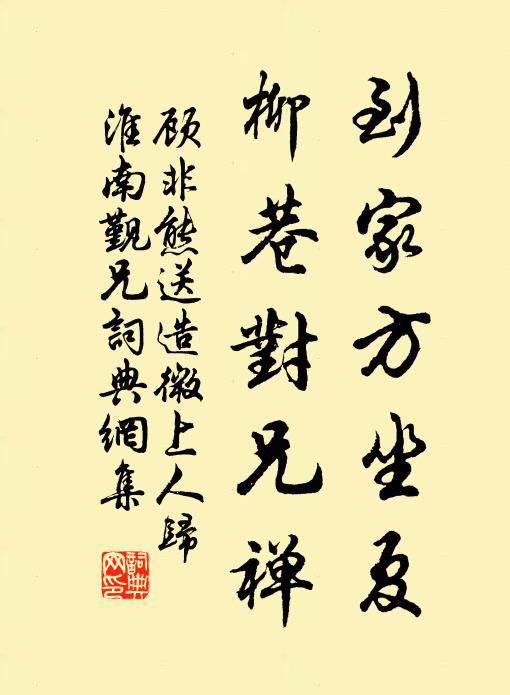 到家方坐夏
柳巷對兄禅
顾非熊送造微上人歸
淮南觐兄詞典網集
詞典网印